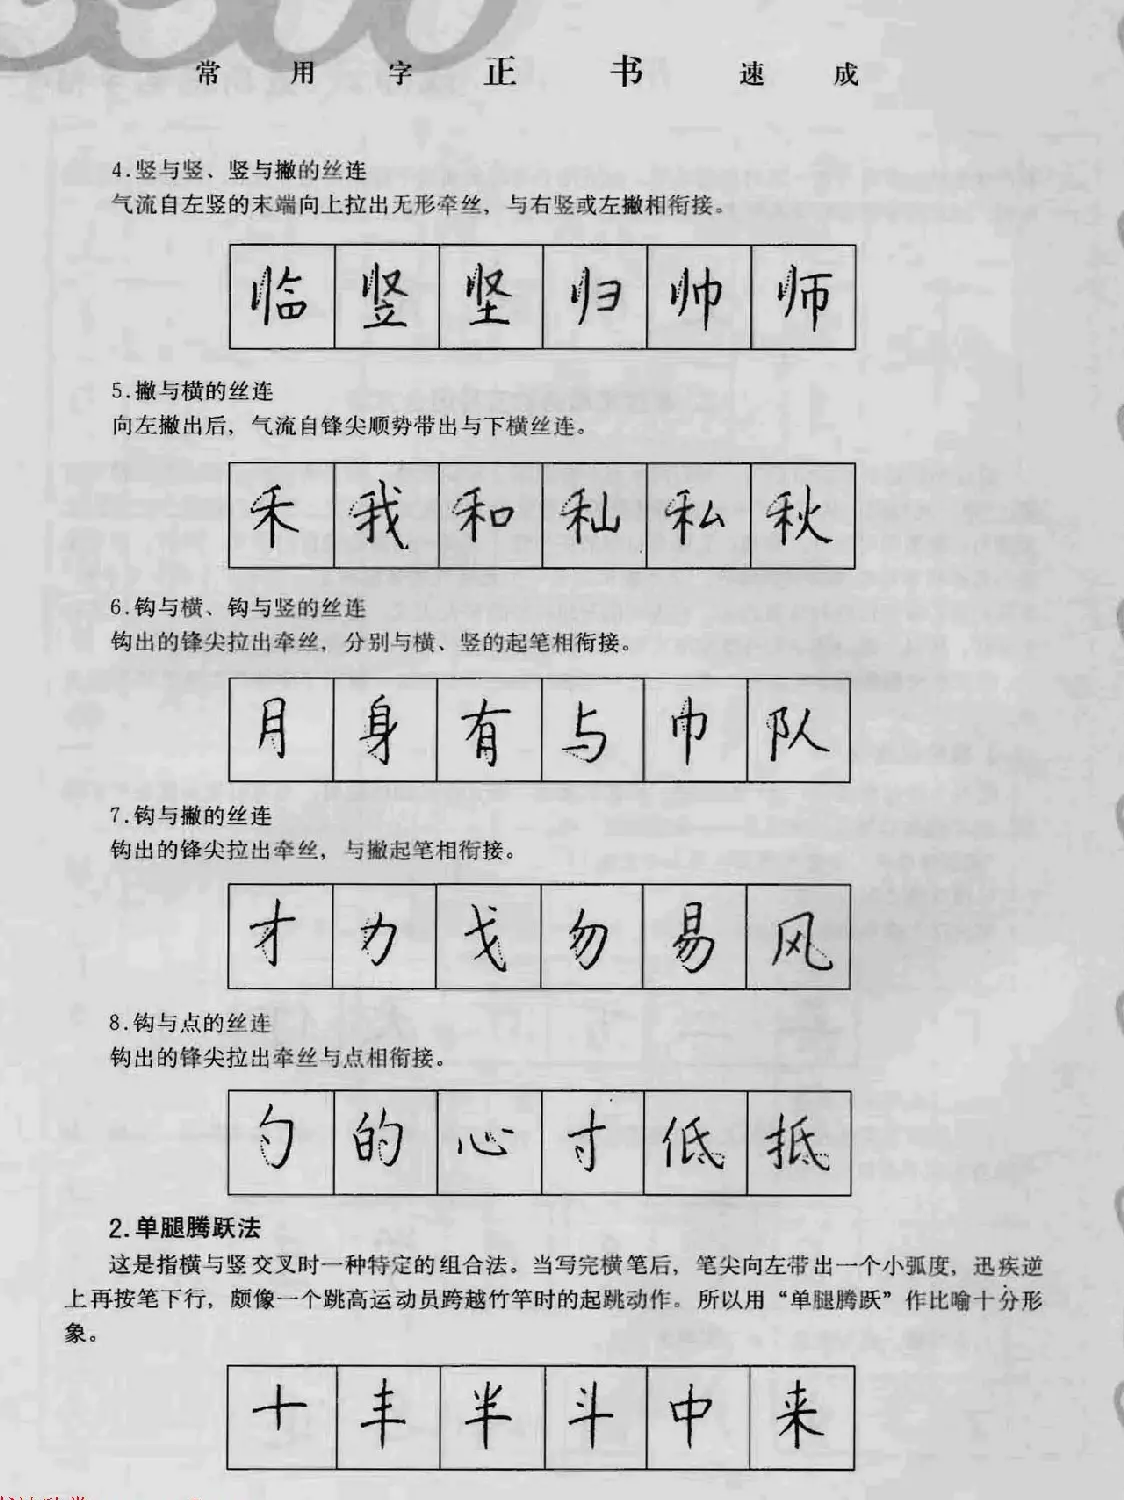 常用字正书速成
4.竖与竖、竖与撇的丝连
气流自左竖的末端向上拉出无形牵丝，与右竖或左撇相衔接。
临 竖 坚 归 帅 师
5.撇与横的丝连
向左撇出后，气流自锋尖顺势带出与下横丝连。
禾 我 和 秈 私 秋
6.钩与横、钩与竖的丝连
钩出的锋尖拉出牵丝，分别与横、竖的起笔相衔接。
月 身 有 与 巾 队
7.钩与撇的丝连
钩出的锋尖拉出牵丝，与撇起笔相衔接。
才 力 戈 勿 易 风
8.钩与点的丝连
钩出的锋尖拉出牵丝与点相衔接。
勺 的 心 寸 低 抵
2.单腿腾跃法
这是指横与竖交叉时一种特定的组合法。当写完横笔后，笔尖向左带出一个小弧度，迅疾逆
上再按笔下行，颇像一个跳高运动员跨越竹竿时的起跳动作。所以用“单腿腾跃”作比喻十分形
象。
十 丰 半 斗 中 来